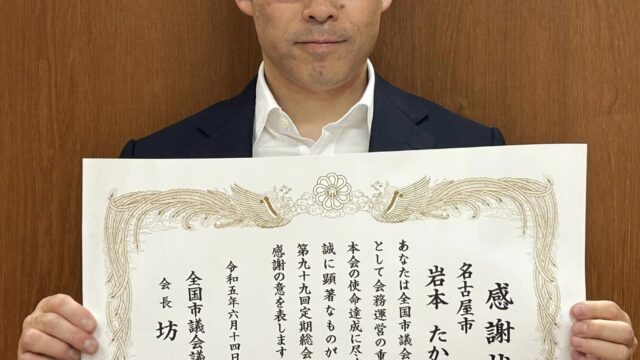 感謝状
名古屋市
岩本 たか
あなたは全国市議会
として会務運営の重
本会の使命達成に尽
誠に顕著なものが
第九十九回定期総会
感謝の意を表します
令和五年六月十四日
全国市議会議
会長 坊